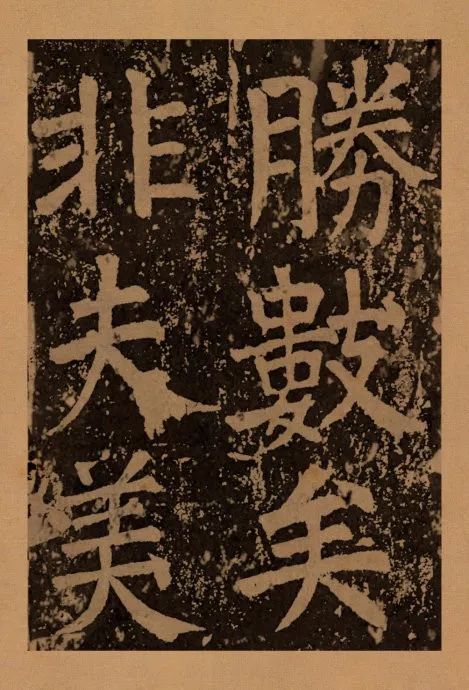 勝數矣
非夫美